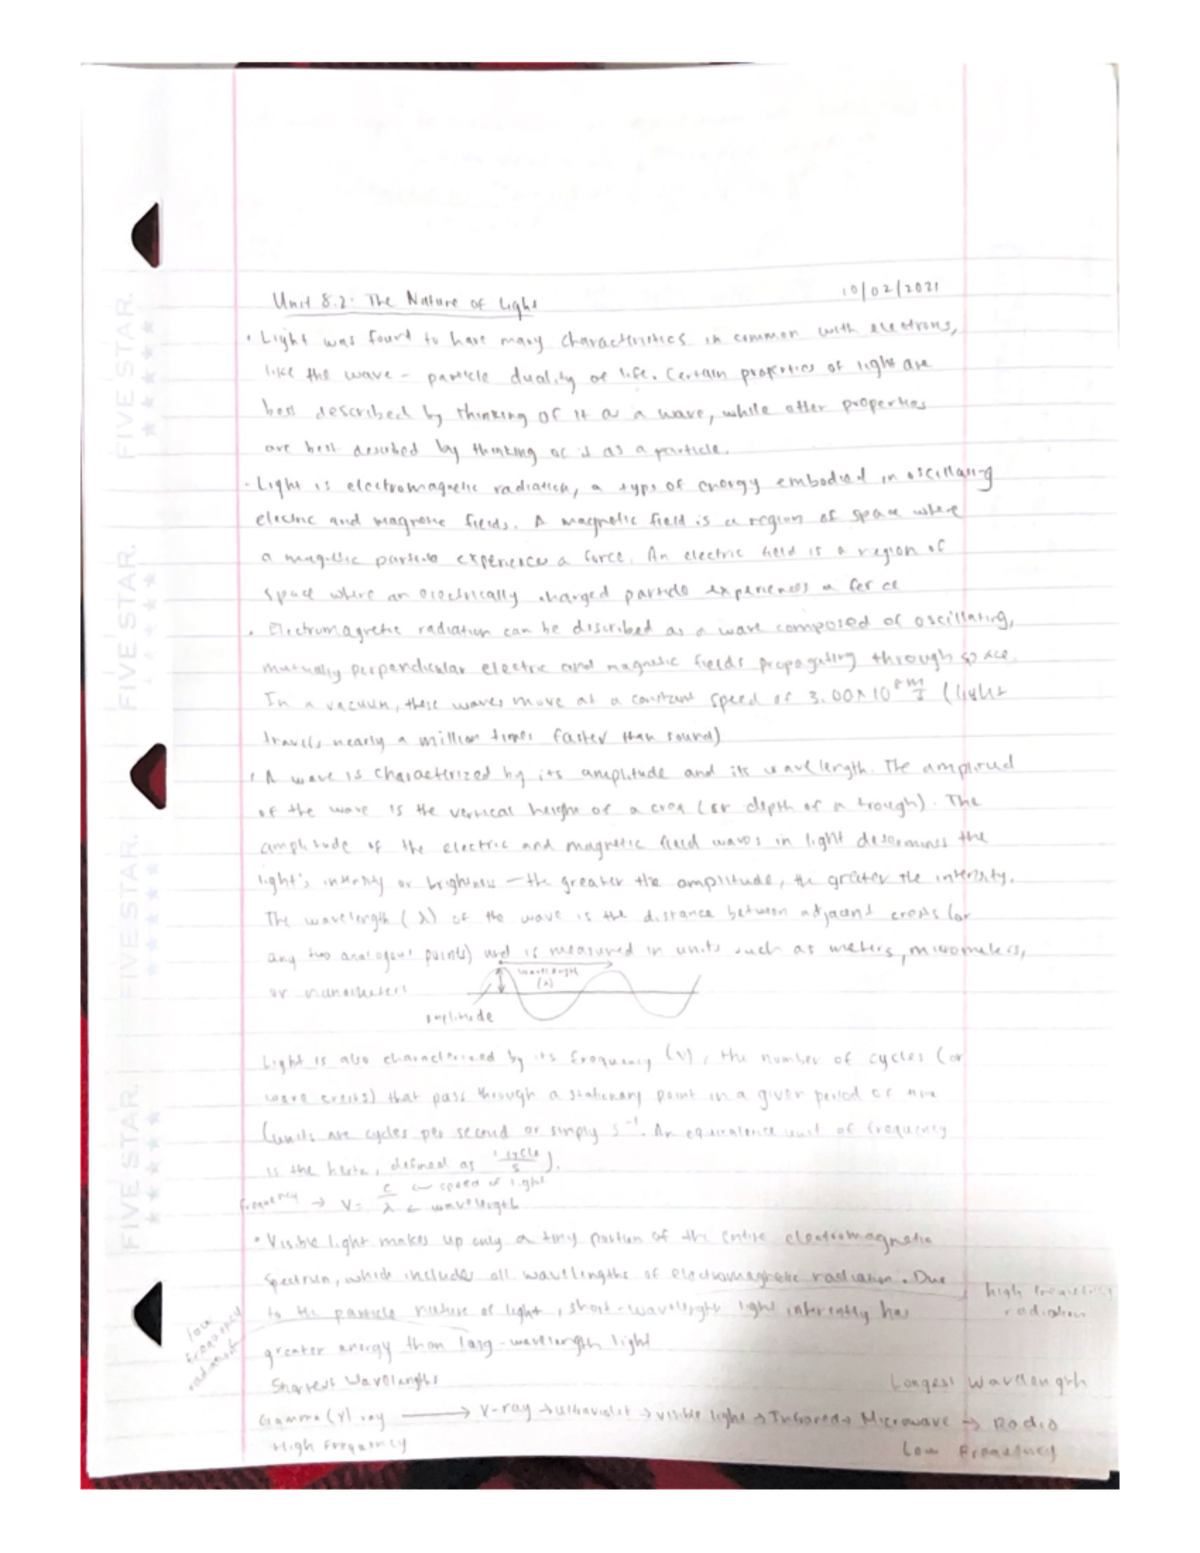 Unit 8.2: The Nature of Light
10/02/2021
• Light was found to have many characteristics in common with electrons,
like the wave - particle duality of life. Certain properties of light are
best described by thinking of it as a wave, while other properties
are best described by thinking of it as a particle.
• Light is electromagnetic radiation, a type of energy embodied in oscillating
electric and magnetic fields. A magnetic field is a region of space where
a magnetic particle experiences a force. An electric field is a region of
space where an electrically charged particle experiences a force
• Electromagnetic radiation can be described as a wave composed of oscillating,
mutually perpendicular electric and magnetic fields propagating through space.
In a vacuum, these waves move at a constant speed of 3.00×10⁸ m/s (light
travels nearly a million times faster than sound)
• A wave is characterized by its amplitude and its wavelength. The amplitud
of the wave is the vertical height of a crest (or depth of a trough). The
amplitude of the electric and magnetic field waves in light determines the
light's intensity or brightness — the greater the amplitude, the greater the intensity.
The wavelength (λ) of the wave is the distance between adjacent crests (or
any two analogous points) and is measured in units such as meters, micrometers,
or nanometers
wavelength
(λ)
amplitude
Light is also characterized by its frequency (ν), the number of cycles (or
wave crests) that pass through a stationary point in a given period of time
(units are cycles per second or simply s⁻¹. An equivalence unit of frequency
is the hertz, defined as 1 cycle/s).
frequency → ν = c/λ ← speed of light
← wavelength
• Visible light makes up only a tiny portion of the entire electromagnetic
spectrum, which includes all wavelengths of electromagnetic radiation. Due
high frequency
radiation
to the particle nature of light, short-wavelength light inherently has
low
frequency
radiation
greater energy than long-wavelength light
Shortest Wavelengths
Longest Wavelength
Gamma (γ) ray → X-ray → Ultraviolet → visible light → Infrared → Microwave → Radio
High Frequency
Low Frequency
FIVE STAR.
FIVE STAR.
FIVE STAR.
FIVE STAR.